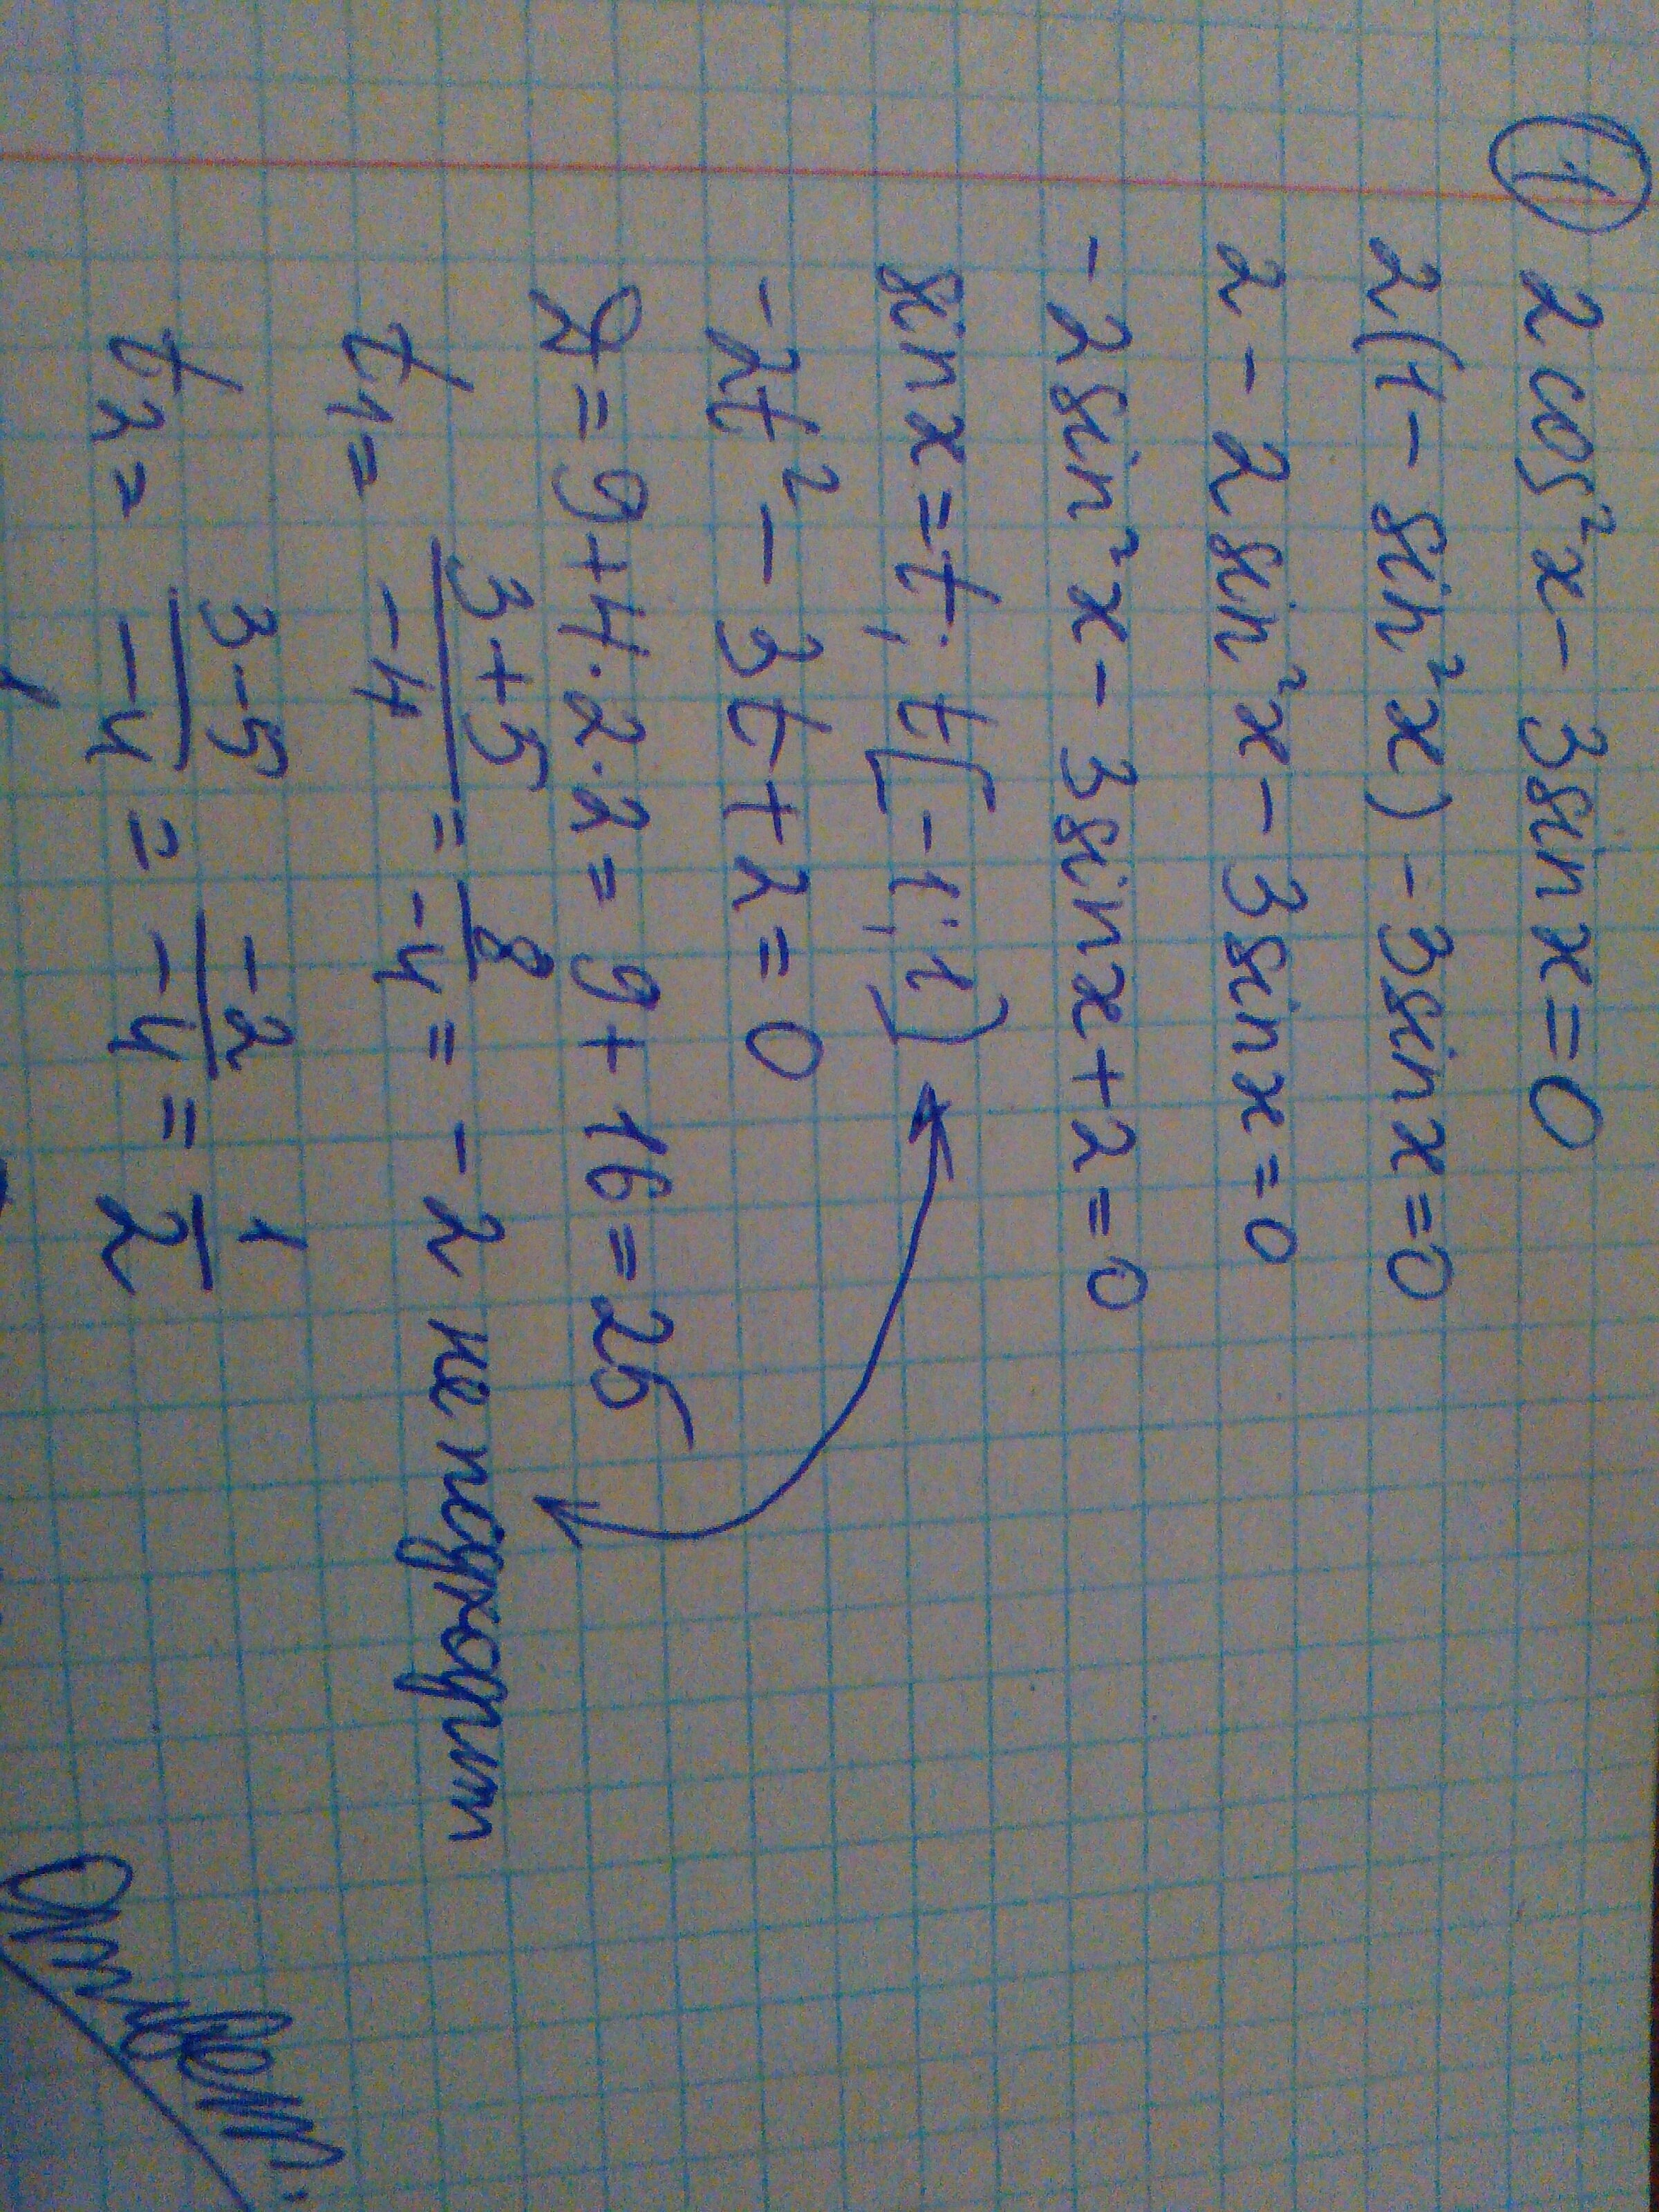 ① 2cos²x - 3sinx = 0
2(1 - sin²x) - 3sinx = 0
2 - 2sin²x - 3sinx = 0
-2sin²x - 3sinx + 2 = 0
sinx = t, t[-1;1]
-2t² - 3t + 2 = 0
D = 9 + 4·2·2 = 9 + 16 = 25
t1 = (3+5)/(-4) = 8/(-4) = -2 не подходит
t2 = (3-5)/(-4) = (-2)/(-4) = 1/2